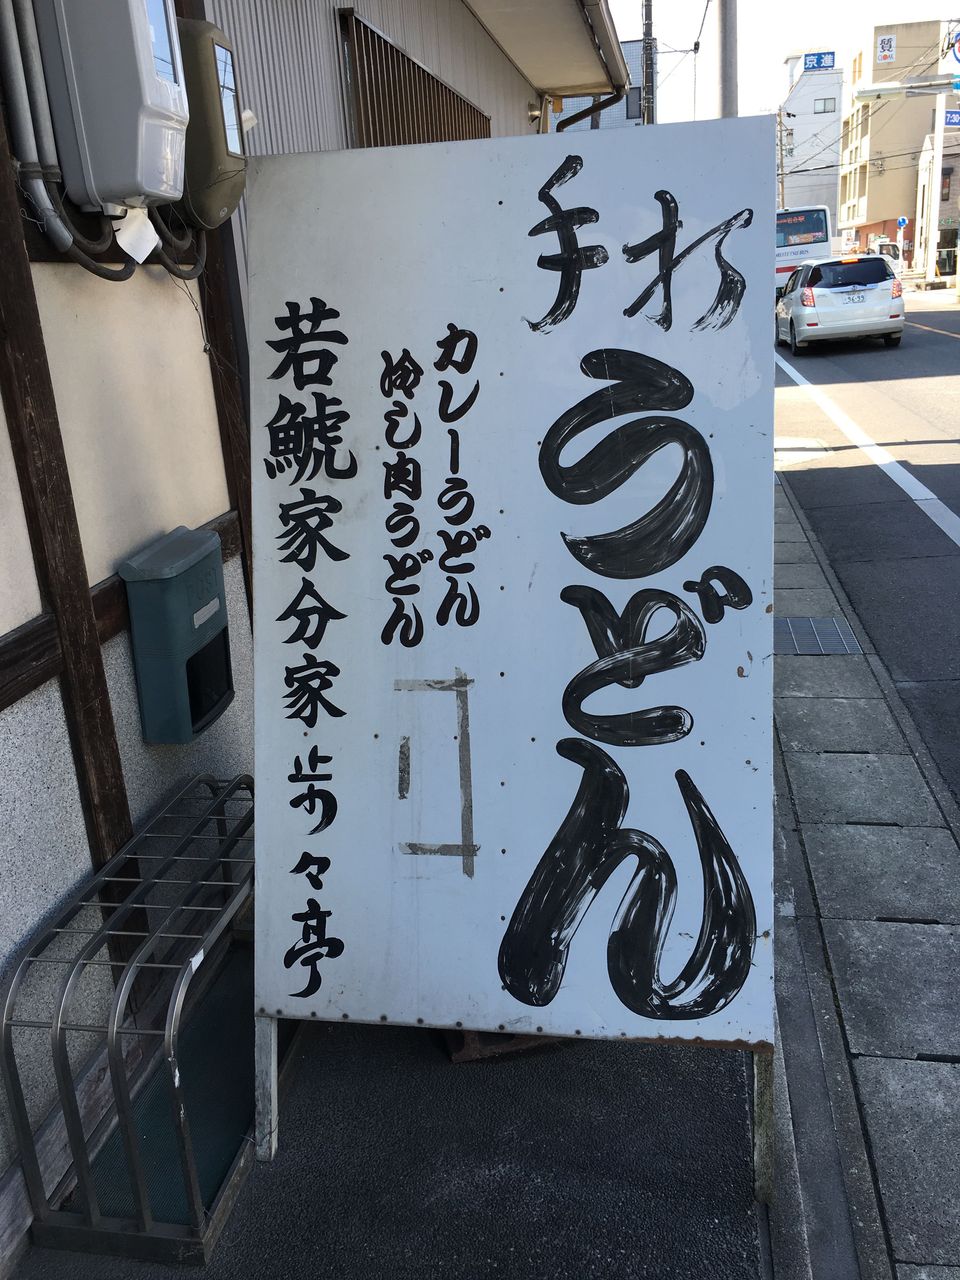 手打
うどん
カレーうどん
冷し肉うどん
若鯱家分家歩々亭
質
京進
7:30
POST